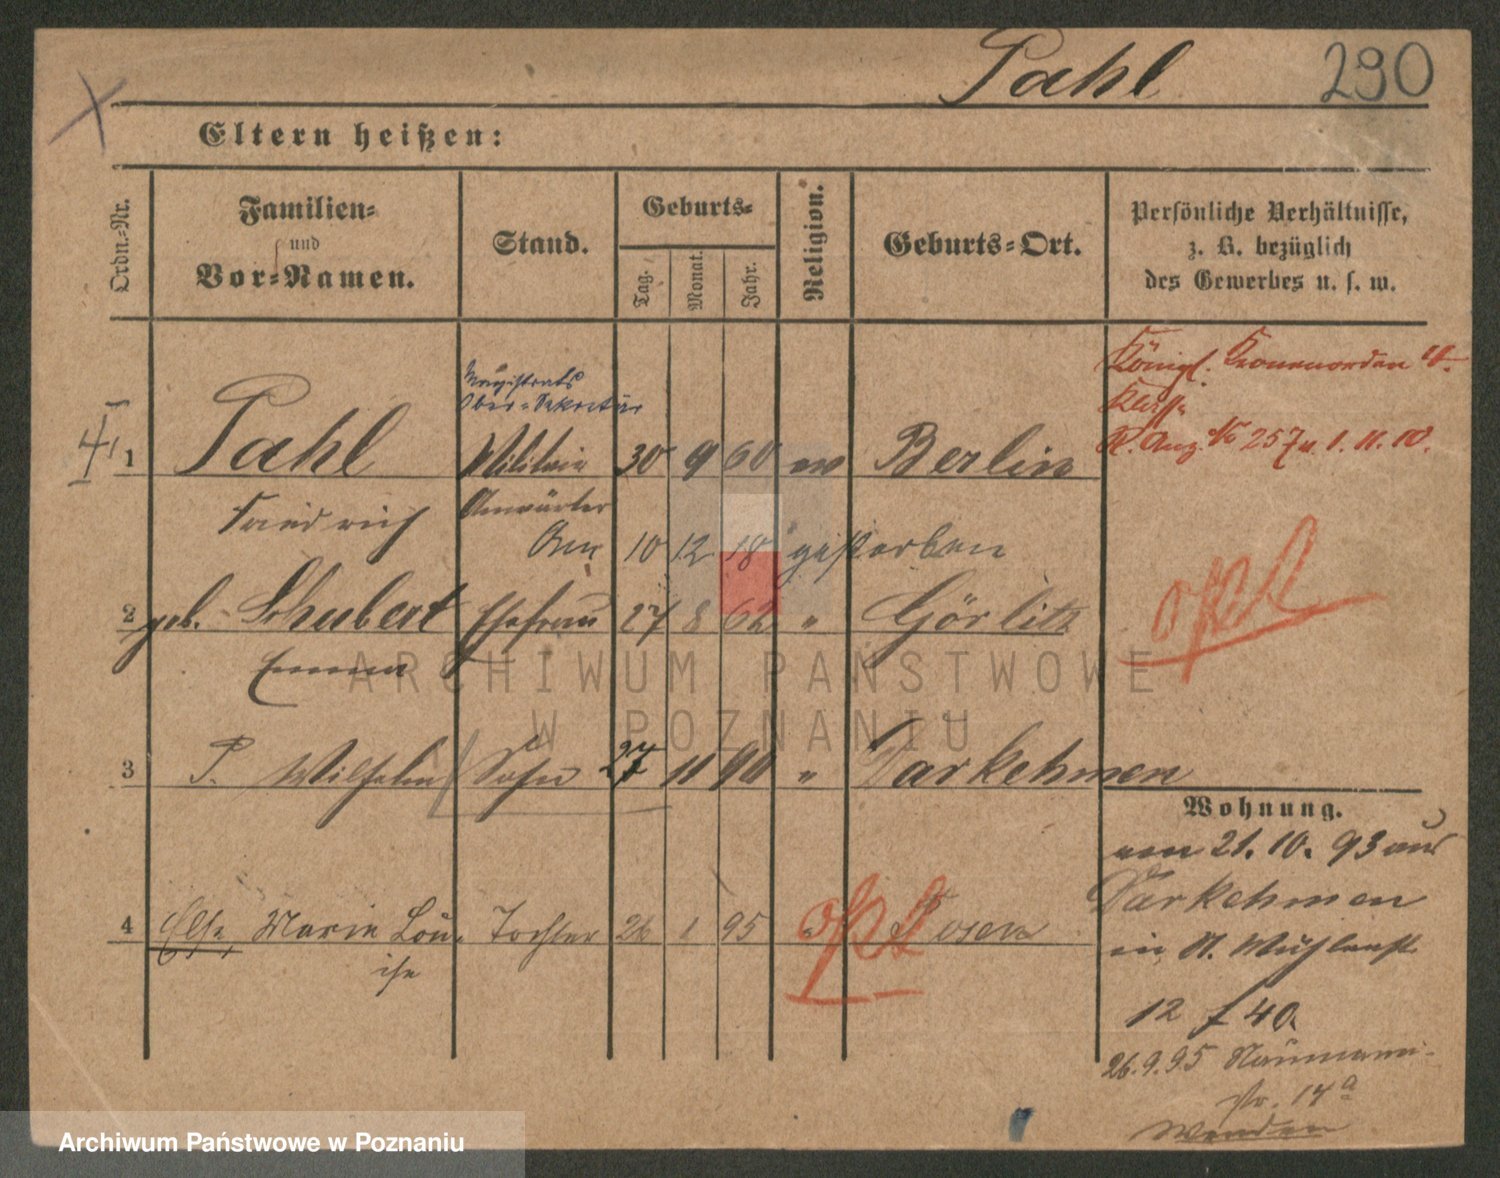 Pahl 290
Eltern heißen:
Ordn.-Nr. Familien- und Vor-Namen. Stand. Geburts- Tag. Monat. Jahr. Religion. Geburts-Ort. Persönliche Verhältnisse, z. B. bezüglich des Gewerbes u. s. w.
Königl. Kronenorden
Klasse
Magistrats
Ober-Sekretär
1 Pahl Militair 30 9 60 ev Berlin
257 v. 1.11.10.
Friedrich Anwärter
Am 10 12 18 gestorben
2 geb. Schubert Ehefrau 27 8 62 " Görlitz
Emma
opt
ARCHIWUM PAŃSTWOWE
W POZNANIU
3 P. Wilhelm Sohn 27 11 90 " Darkehmen
Wohnung.
am 21.10.93 aus
Darkehmen
4 Else Marie Lou- Tochter 26 1 95 " Posen
ise
opt
in St. Mühlenst
12 f 40.
26.9.95 Naumann-
str. 14a
Archiwum Państwowe w Poznaniu